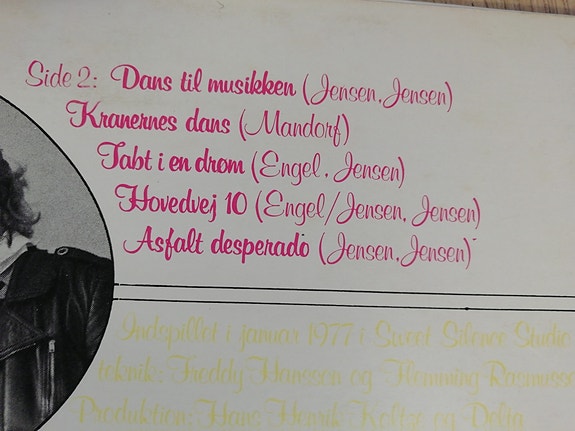 Side 2: Dans til musikken (Jensen, Jensen)
Kranernes dans (Mandorf)
Tabt i en drøm (Engel, Jensen)
Hovedvej 10 (Engel/Jensen, Jensen)
Asfalt desperado (Jensen, Jensen)
Indspillet i januar 1977 i Sweet Silence Studio
teknik: Freddy Hansson og Flemming Rasmuss
Produktion: Hans Henrik Koltze og Delta